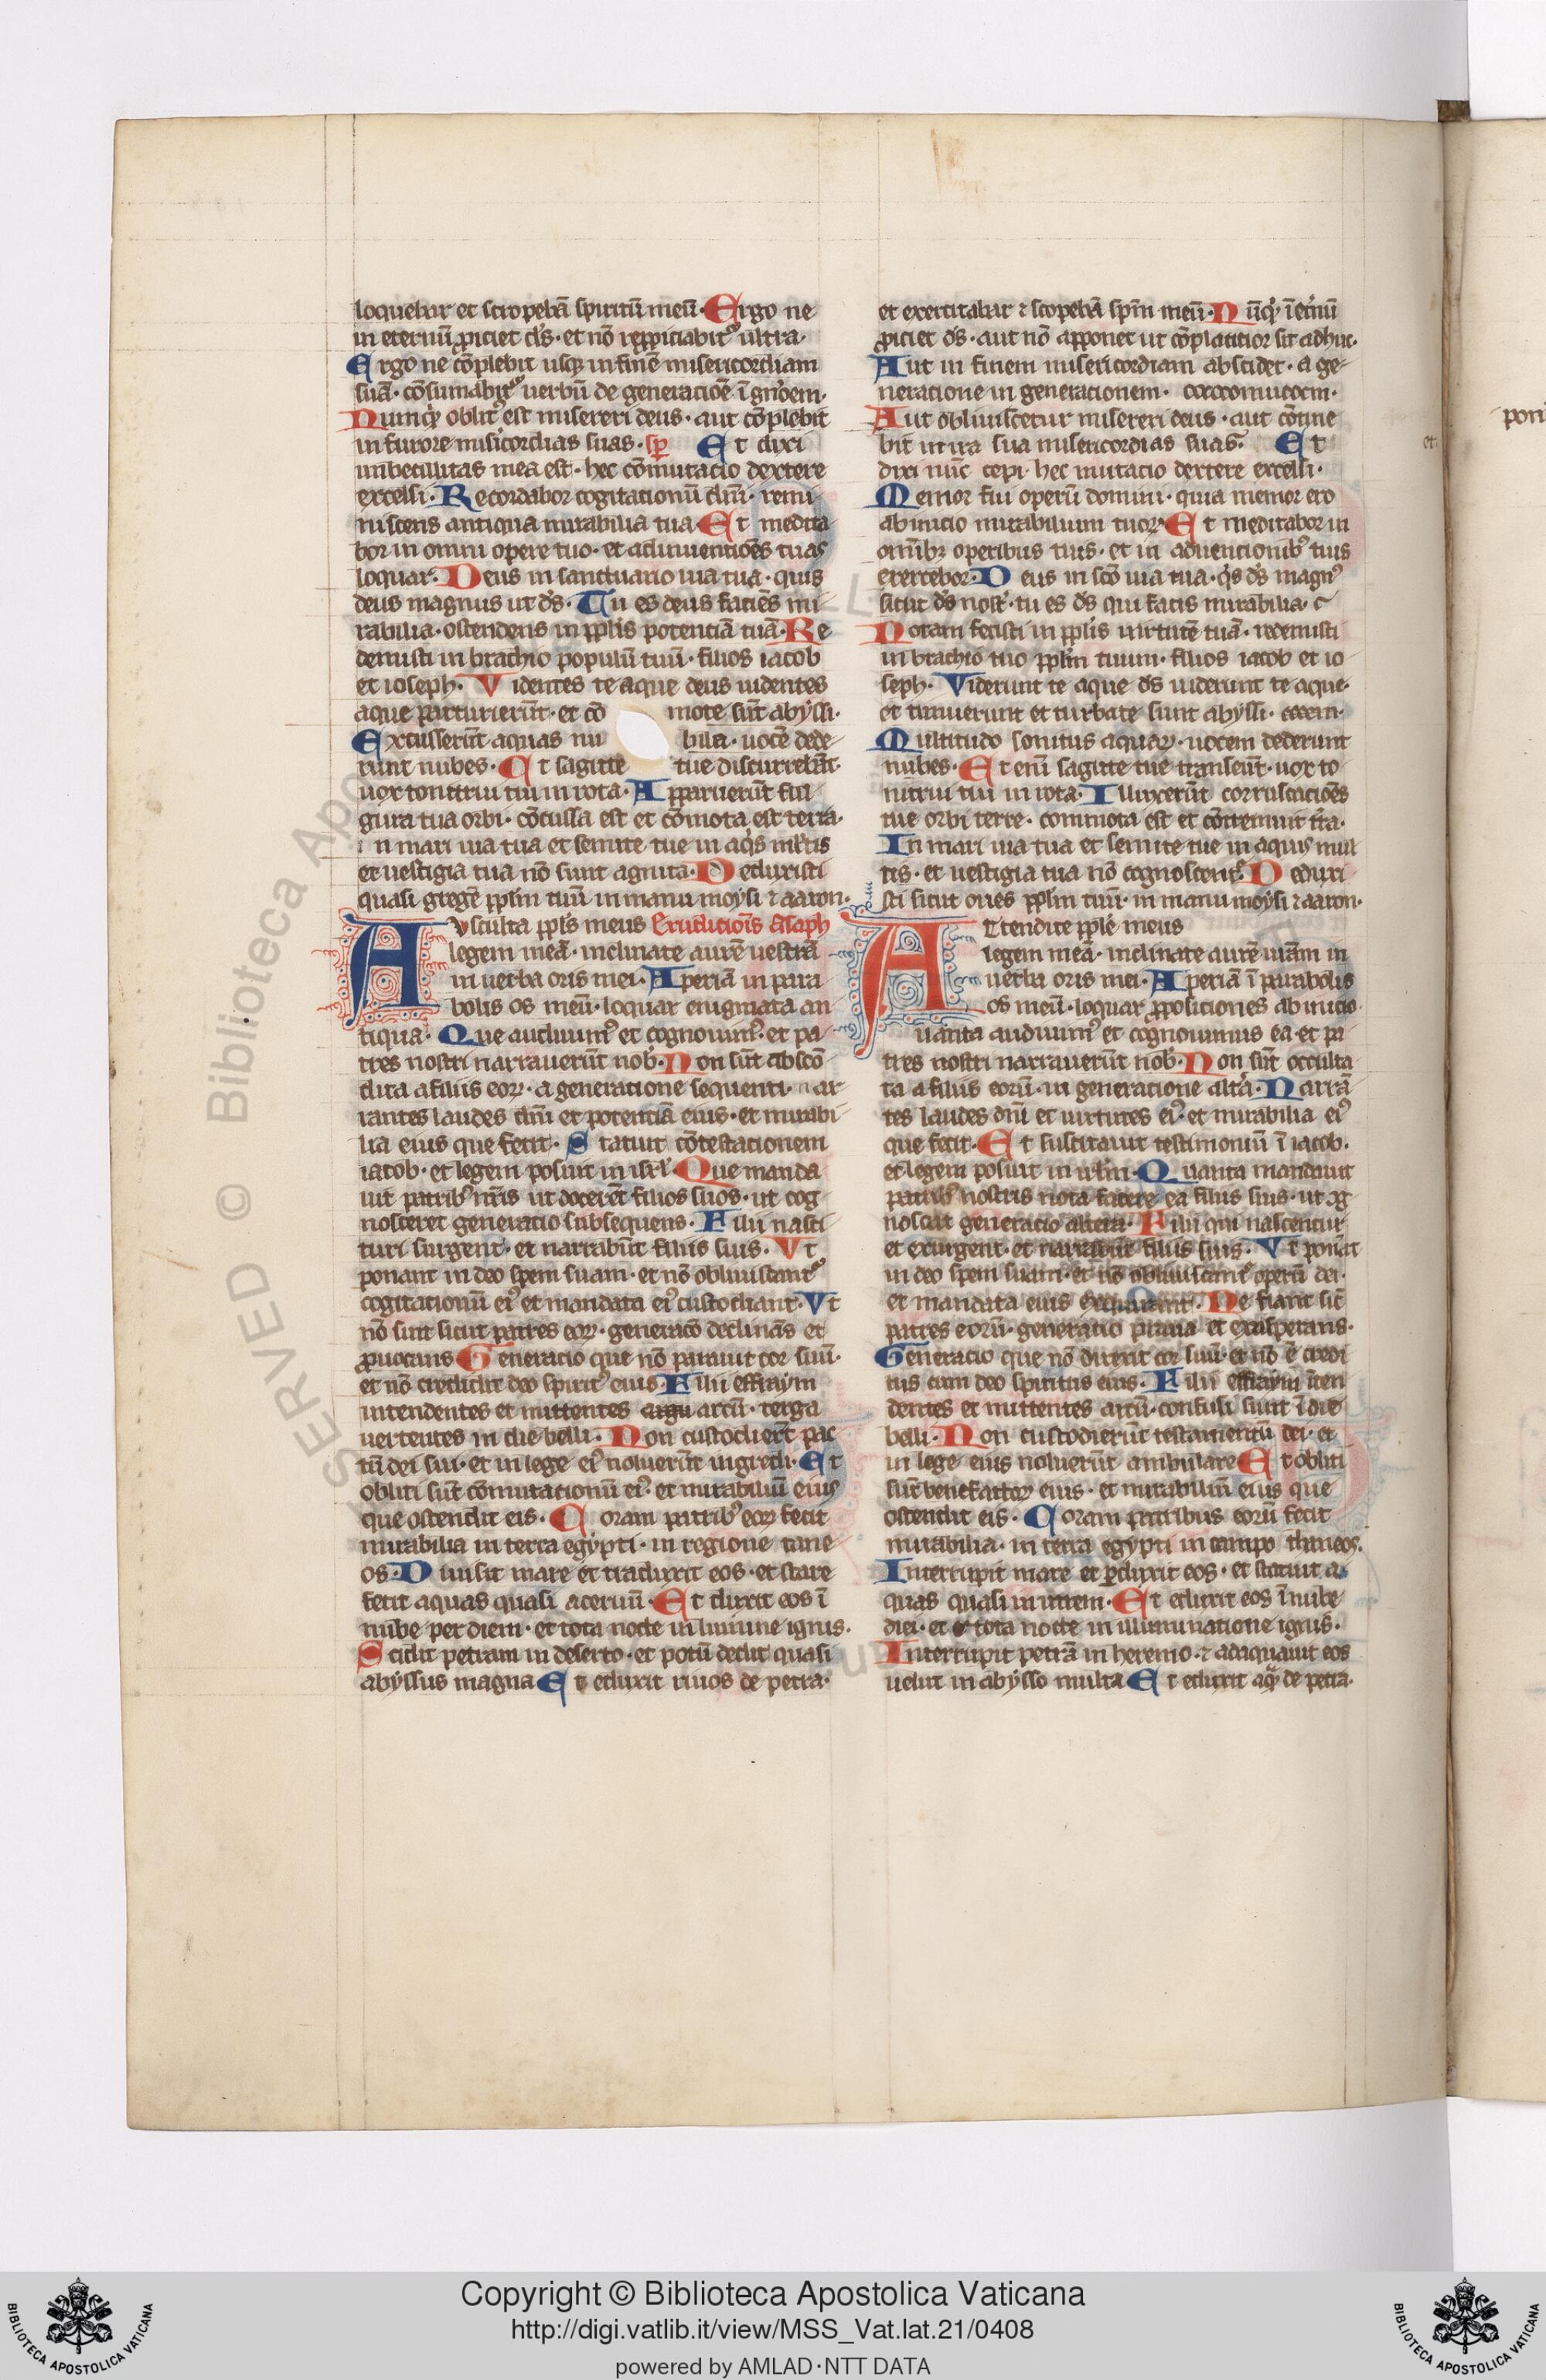 loquebar et scropebā spiritū meū· Ergo ne
in eternū ꝓiciet ds̄· et nō reppiciabit᷑ ultra·
Ergo ne cōplebit usqꝫ in finē misericordiam
suā· cōsumabit᷑ uerbū de generacioē ī gnōem·
Numqͥd oblitꝰ est misereri deus· aut cōplebit
in furore mis̄icordias suas· Et dixi
inbecillitas mea est· hec cōmutacio dextere
excelsi· Recordabor cogitationū dn̄i· remi
niscens antiqua mirabilia tua Et medita
bor in omni opere tuo· et adinuentiōes tuas
loquar· Deus in sanctuario uia tua· quis
deus magnus ut ds̄· Tu es deus faciēs mi
rabilia· ostendens in ppl̄is potentiā tuā· Re
demisti in brachio populū tuū· filios iacob
et ioseph· Videntes te aque deus uidentes
aque parturierūt· et cō mote sūt abyssi·
Excusserūt aquas nu bila· uocē dede
runt nubes· Et sagitte tue discurrebāt·
uox tonitrui tui in rota· Apparuerūt ful
gura tua orbi· cōcussa est et cōmota est terra·
in mari uia tua et semite tue in aqͥs ml̄tis
et uestigia tua nō sunt agnita· Deduxisti
quasi gregē ppl̄m tuū in manu moysi ⁊ aaron·
Ausculta ppl̄s meus Eruditiōis Asaph
legem meā· inclinate aurē uestrā
in uerba oris mei· Aperiā in para
bolis os meū· loquar enigmata an
tiqua· Que audiuimꝰ et cognouimꝰ· et pa
tres nostri narrauerūt nob· Non sūt abscō
dita a filiis eoꝝ· a generatione sequenti· nar
rantes laudes dn̄i et potentiā eius· et mirabi
lia eius que fecit· Statuit cōtestationem
iacob· et legem posuit in isrl̄· Que manda
uit patribꝰ nr̄is ut docerēt filios suos· ut cog
nosceret generatio subsequens· Filii nasci
turi surgent· et narrabūt filiis suis· Vt
ponant in deo spem suam· et nō obliuiscant᷑
cogitationū eiꝰ et mandata eiꝰ custodiant· Vt
nō sint sicut patres eoꝝ· generacō declinās et
ꝓuocans Generacio que nō parauit cor suū·
et nō credidit deo spiritꝰ eius· Filii effraym
intendentes et mittentes argu arcū· terga
uertentes in die belli· Non custodierūt pac
tū dei sui· et in lege eiꝰ noluerūt ingredi· Et
obliti sūt cōmutationū eiꝰ· et mirabiliū eius
que ostendit eis· Coram patribꝰ eoꝝ fecit
mirabilia in terra egypti· in regione tane
os· Diuisit mare et traduxit eos· et stare
fecit aquas quasi aceruū· Et duxit eos ī
nube per diem· et tota nocte in lumine ignis·
Scidit petram in deserto· et potū dedit quasi
abyssus magna Et eduxit riuos de petra·
et exercitabar ⁊ scopebā spm̄ meū· Nūqͥd ī et̄nū
ꝓiciet ds̄· aut nō apponet ut cōplacitior sit adhuc·
Aut in finem misericordiam abscidet· a ge
neratione in generationem·
Aut obliuiscetur misereri deus· aut cōtine
bit in ira sua misericordias suas· Et
dixi nūc cepi· hec mutacio dextere excelsi·
Memor fui operū domini· quia memor ero
ab inicio mirabilium tuoꝝ· Et meditabor in
omībꝫ operibus tuis· et in aduencionibꝰ tuis
exercebor· Deus in scō uia tua· qͥs ds̄ magnꝰ
sicut ds̄ nost̄· tu es ds̄ qui facis mirabilia·
Notam fecisti in ppl̄is uirtutē tuā· redemisti
in brachio tuo ppl̄m tuum· filios iacob et io
seph· Viderunt te aque ds̄ uiderunt te aque·
et timuerunt et turbate sunt abyssi·
Multitudo sonitus aquaꝝ· uocem dederunt
nubes· Et enī sagitte tue transeūt· uox to
nitrui tui in rota· Illuxerūt corruscaciōes
tue orbi terre· commota est et cōtremuit t̄ra·
In mari uia tua et semite tue in aquis mul
tis· et uestigia tua nō cognoscent᷑ Deduxi
sti sicut oues ppl̄m tuū· in manu moysi ⁊ aaron·
Attendite ppl̄e meus
legem meā· inclinate aurē ur̄am in
uerba oris mei· Aperiā ī parabolis
os meū· loquar ꝓposiciones ab inicio·
uanta audiuimꝰ et cognouimus ea· et pa
tres nostri narrauerūt nob· Non sūt occulta
ta a filiis eorū· in generatione alt̄a· Narrā
tes laudes dn̄i et uirtutes eiꝰ· et mirabilia eiꝰ
que fecit· Et suscitauit testimoniū ī iacob·
et legem posuit in isrl̄· Quanta mandauit
patribꝰ nostris nota facere ea filiis suis· ut ꝯg
noscat generacio altera· Filii qui nascentur
et exurgent· et narrabūt filiis suis· Vt ponāt
in deo spem suam· et nō obliuiscant᷑ operū dei·
et mandata eius exquirant· Ne fiant sic̄
patres eorū· generatio praua et exasperans·
Generacio que nō direxit cor suū· et nō ē credi
tus cum deo spiritus eius· Filii effraym īten
dentes et mittentes arcū· conuersi sunt ī die
belli· Non custodierūt testamentū dei· et
in lege eius noluerūt ambulare Et obliti
sūt benefactoꝝ eius· et mirabiliū eius que
ostendit eis· Coram patribus eorū fecit
mirabilia· in terra egypti in campo thaneos·
Interrupit mare et ꝑduxit eos· et statuit a
quas quasi in utrem· Et eduxit eos ī nube
diei· et tota nocte in illuminatione ignis·
Interrupit petrā in heremo· ⁊ adaquauit eos
uelut in abysso multa Et eduxit aqͣꝫ de petra·
et
Copyright © Biblioteca Apostolica Vaticana
http://digi.vatlib.it/view/MSS_Vat.lat.21/0408
powered by AMLAD·NTT DATA
BIBLIOTECA APOSTOLICA VATICANA
BIBLIOTECA APOSTOLICA VATICANA